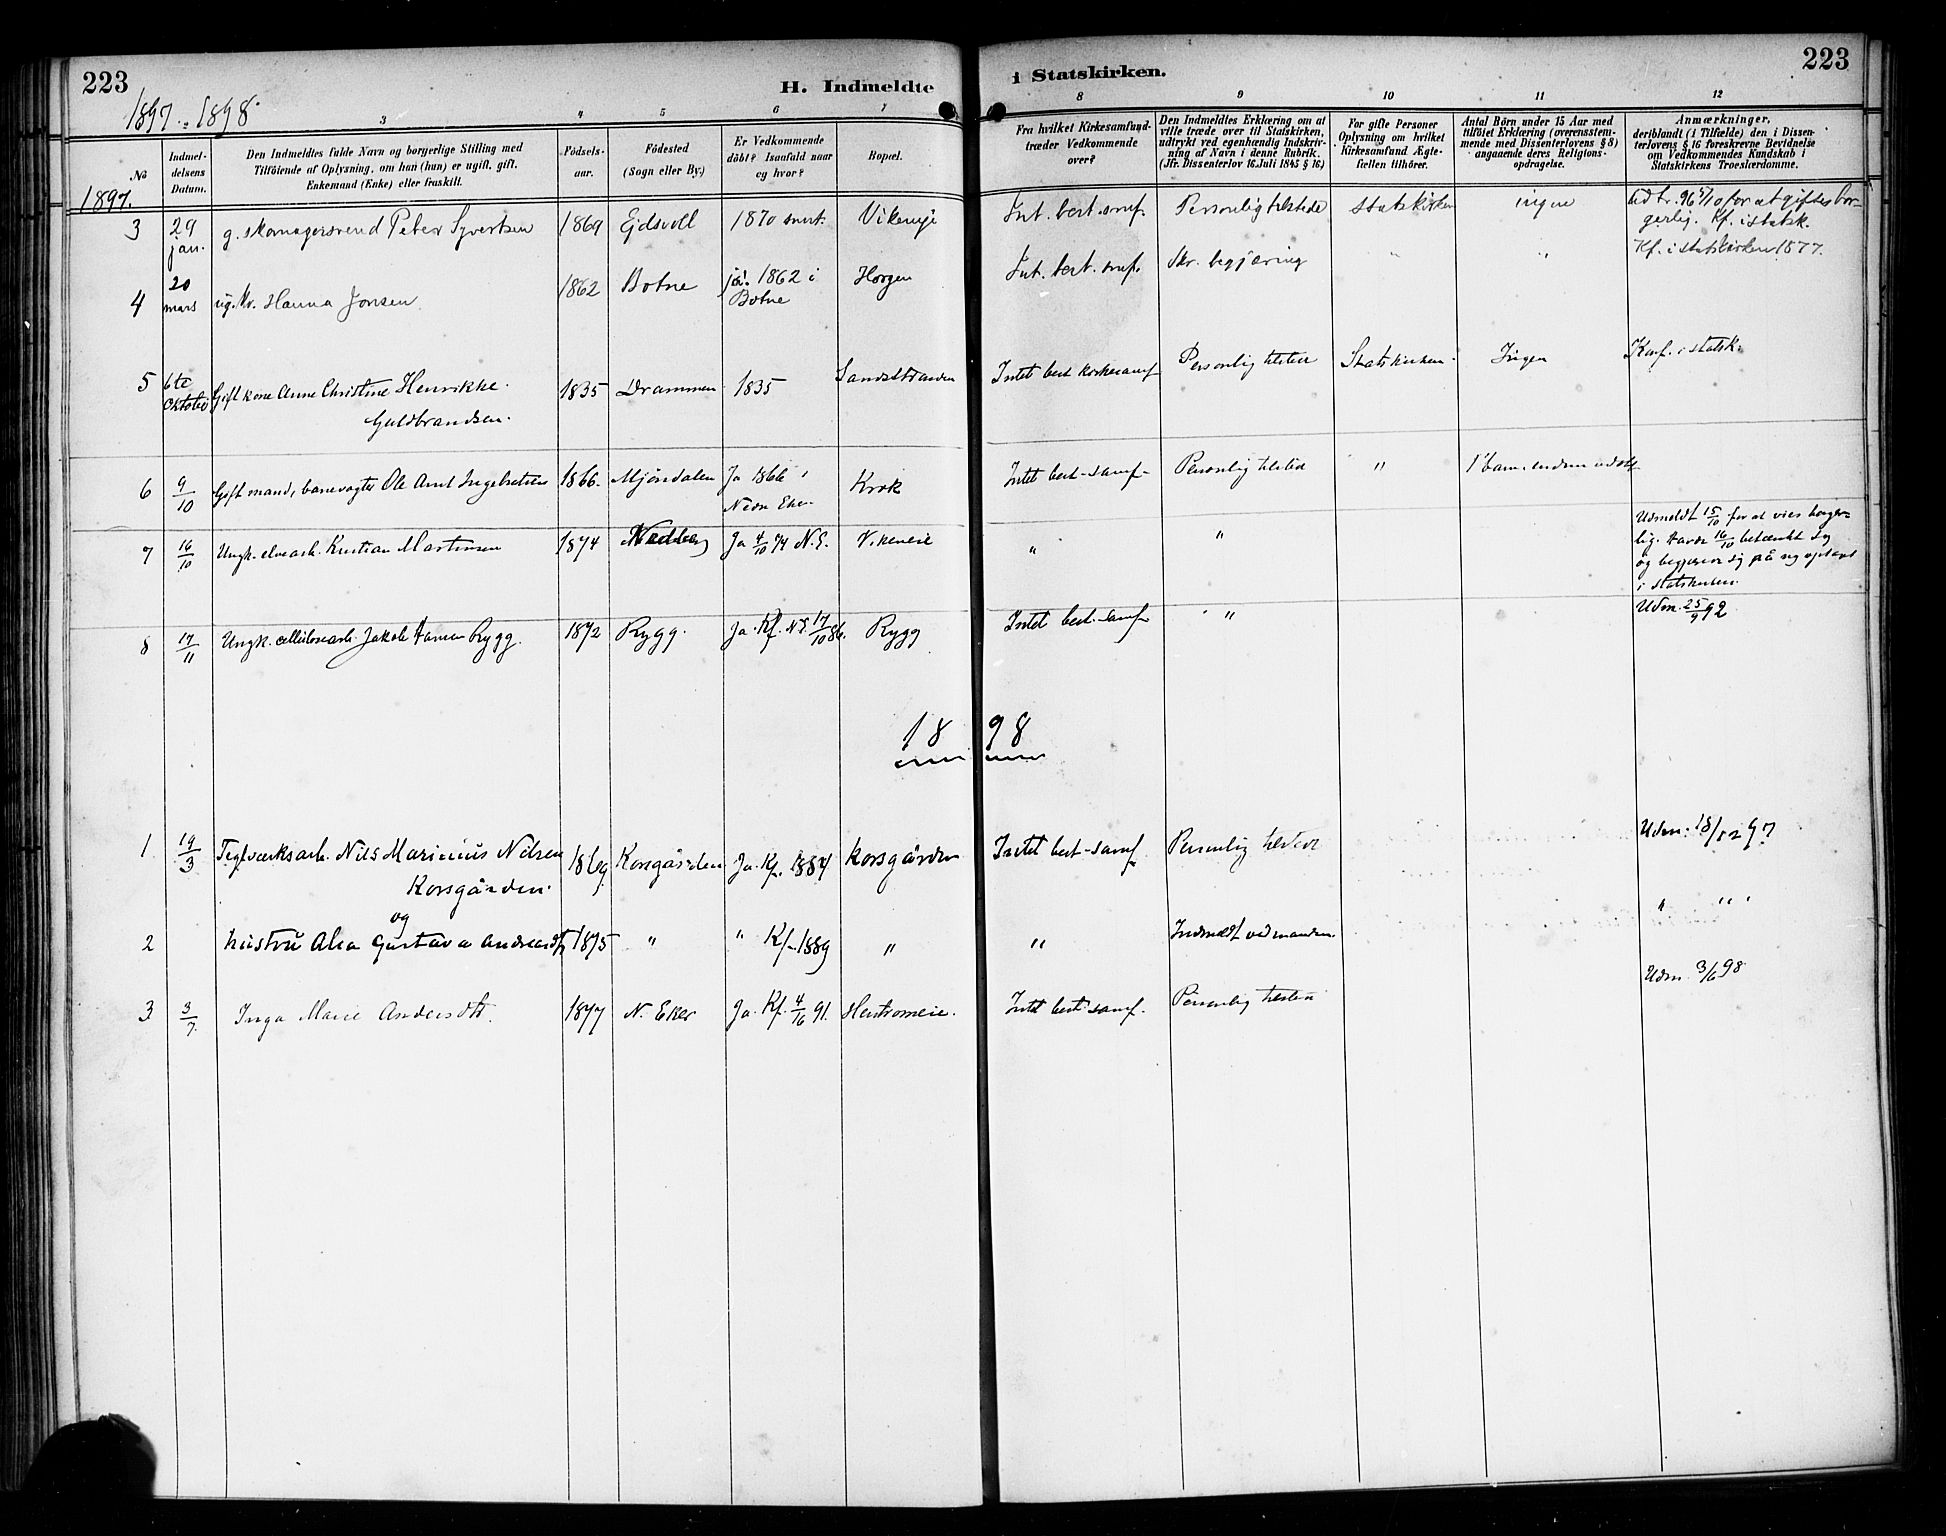 223
H. Indmeldte i Statskirken.
223
1897-1898
3 4 5 6 7 8 9 10 11 12
No
Indmeldelsens Datum.
Den Indmeldtes fulde Navn og borgerlige Stilling med Tilföiende af Oplysning, om han (hun) er ugift, gift, Enkemand (Enke) eller fraskilt.
Födselsaar.
Födested (Sogn eller By.)
Er Vedkommende döbt? Isaafald naar og hvor?
Bopæl.
Fra hvilket Kirkesamfund træder Vedkommende over?
Den Indmeldtes Erklæring om at ville træde over til Statskirken, udtrykt ved egenhændig Indskrivning af Navn i denne Rubrik. (Jfr. Dissenterlov 16 Juli 1845 § 16)
For gifte Personer Oplysning om hvilket Kirkesamfund Ægtefællen tilhörer.
Antal Börn under 15 Aar med tilföiet Erklæring (overensstemmende med Dissenterlovens § 8) angaaende deres Religionsopdragelse.
Anmærkninger, deriblandt (i Tilfælde) den i Dissenterlovens § 16 foreskrevne Bevidnelse om Vedkommendes Kundskab i Statskirkens Troeslærdomme.
1897.
3 29 jan. g. skomagersvend Peter Syvertsen 1869 Ejdsvoll 1870 smst. Vikeneje Int. best. smf. Personlig tilstede statskirken ingen Udtr. 96 5/10 for at giftes borgerlig. Kf. i statsk.
4 20 mars ug. Kv. Hanna Jonsen 1862 Botne ja. 1862 i Botne Horgen Int. best. smf. Skr. begjæring " " Kf. i statskirken 1877.
5 6te Oktober Gift kone Anne Christine Henrikke Guldbrandsen. 1835 Drammen 1835 Sandstranden Intet best kirkesamf Personlig tilsted Statskirken. Ingen Konf. i statsk.
6 9/10 Gift mand, banevogter Ole Amt Ingebretsen 1866. Mjöndalen Ja 1866 i Nedre Eker Krok Intet best-samf- Personlig tilsted " 1 barn
7 16/10 Ungk. elvearb. Kristian Martinsen 1874 Nedberg Ja 4/10 74 N.E. Vikeneie " " Udmeldt 15/10 for at vies borgerlig. Havde 16/10 betænkt sig og begjærer sig på ny optaget i statskirken.
8 17/11 Ungk. cellulosearb. Jakob Hansen Rygg. 1872 Rygg. Ja. Kf. N.E. 17/10 86. Rygg Intet best-samf " Udm. 25/9 92
1898
1 19/3 Teglværksarb. Nils Marinius Nilsen Korsgården. 1869 Korsgården Ja. Kf. 1884 Korsgården Intet best-samf Personlig tilsted Udm. 18/12 97
og
2 hustru Alea Gustava Andersdtr 1875 " " Kf. 1889 " " Indmeldt ved manden. " " "
3 3/7. Inga Marie Andersdtr. 1877 N. Eker Ja. Kf. 4/16 91. Stenstromeie. Intet best-samf. Personlig tilsted Udm. 3/6 98